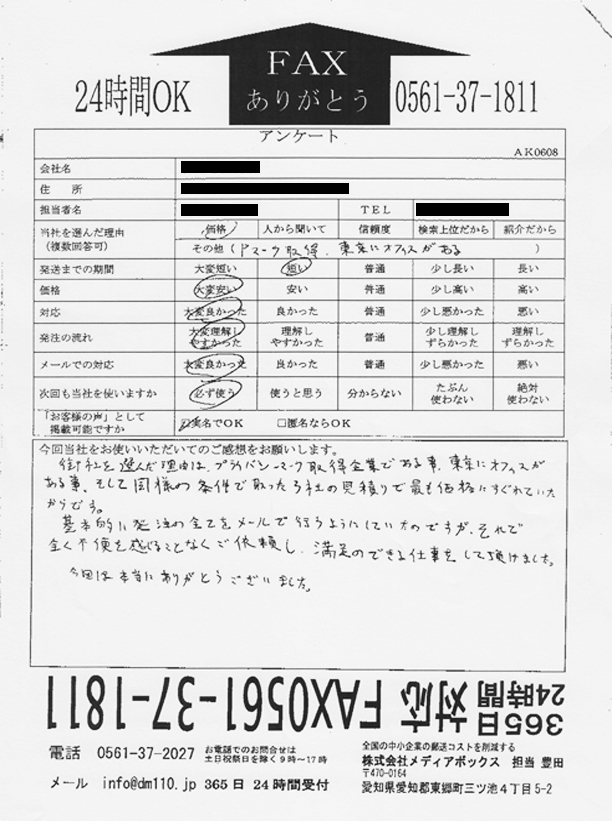 FAX
ありがとう
24時間OK
0561-37-1811
アンケート
AK0608
会社名
住　所
担当者名 TEL
当社を選んだ理由 (複数回答可) 価格 人から聞いて 信頼度 検索上位だから 紹介だから
その他 (Pマーク取得、東京にオフィスがある )
発送までの期間 大変短い 短い 普通 少し長い 長い
価格 大変安い 安い 普通 少し高い 高い
対応 大変良かった 良かった 普通 少し悪かった 悪い
発注の流れ 大変理解しやすかった 理解しやすかった 普通 少し理解しずらかった 理解しずらかった
メールでの対応 大変良かった 良かった 普通 少し悪かった 悪い
次回も当社を使いますか 必ず使う 使うと思う 分からない たぶん使わない 絶対使わない
「お客様の声」として掲載可能ですか □実名でOK □匿名ならOK
今回当社をお使いいただいてのご感想をお願いします。
御社を選んだ理由は、プライバシーマーク取得企業である事、東京にオフィスが
ある事、そして同様の条件で取った5社の見積りで最も価格にすぐれていた
からです。
基本的に発注の全てをメールで行うようにしていたのですが、それで
全く不便を感じることなくご依頼し、満足のできる仕事をして頂けました。
今回は本当にありがとうございました。
365日 24時間 対応 FAX0561-37-1811
電話 0561-37-2027 お電話でのお問合せは
土日祝祭日を除く9時～17時
メール info@dm110.jp 365日 24時間受付
全国の中小企業の郵送コストを削減する
株式会社メディアボックス 担当 豊田
〒470-0164
愛知県愛知郡東郷町三ツ池4丁目5-2